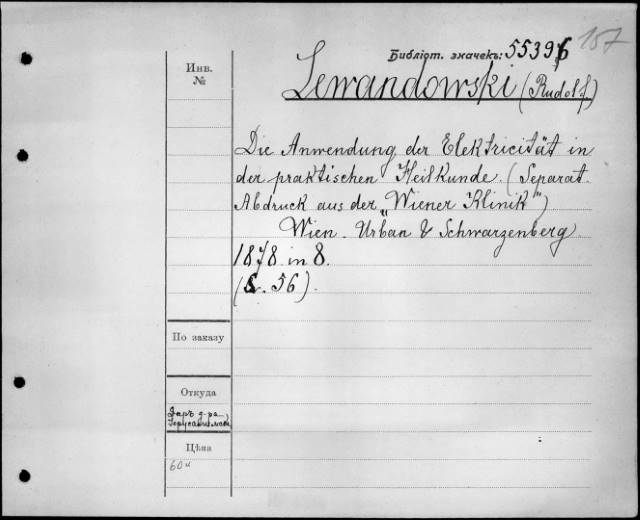 157
Библіот. значекъ: 55396
Инв.
№
Lewandowski (Rudolf)
Die Anwendung der Elektricität in
der praktischen Heilkunde. (Separat-
Abdruck aus der „Wiener Klinik")
Wien. Urban & Schwarzenberg
1878. in 8.
(S. 56).
По заказу
Откуда
Даръ д-ра
Цѣна
60 к